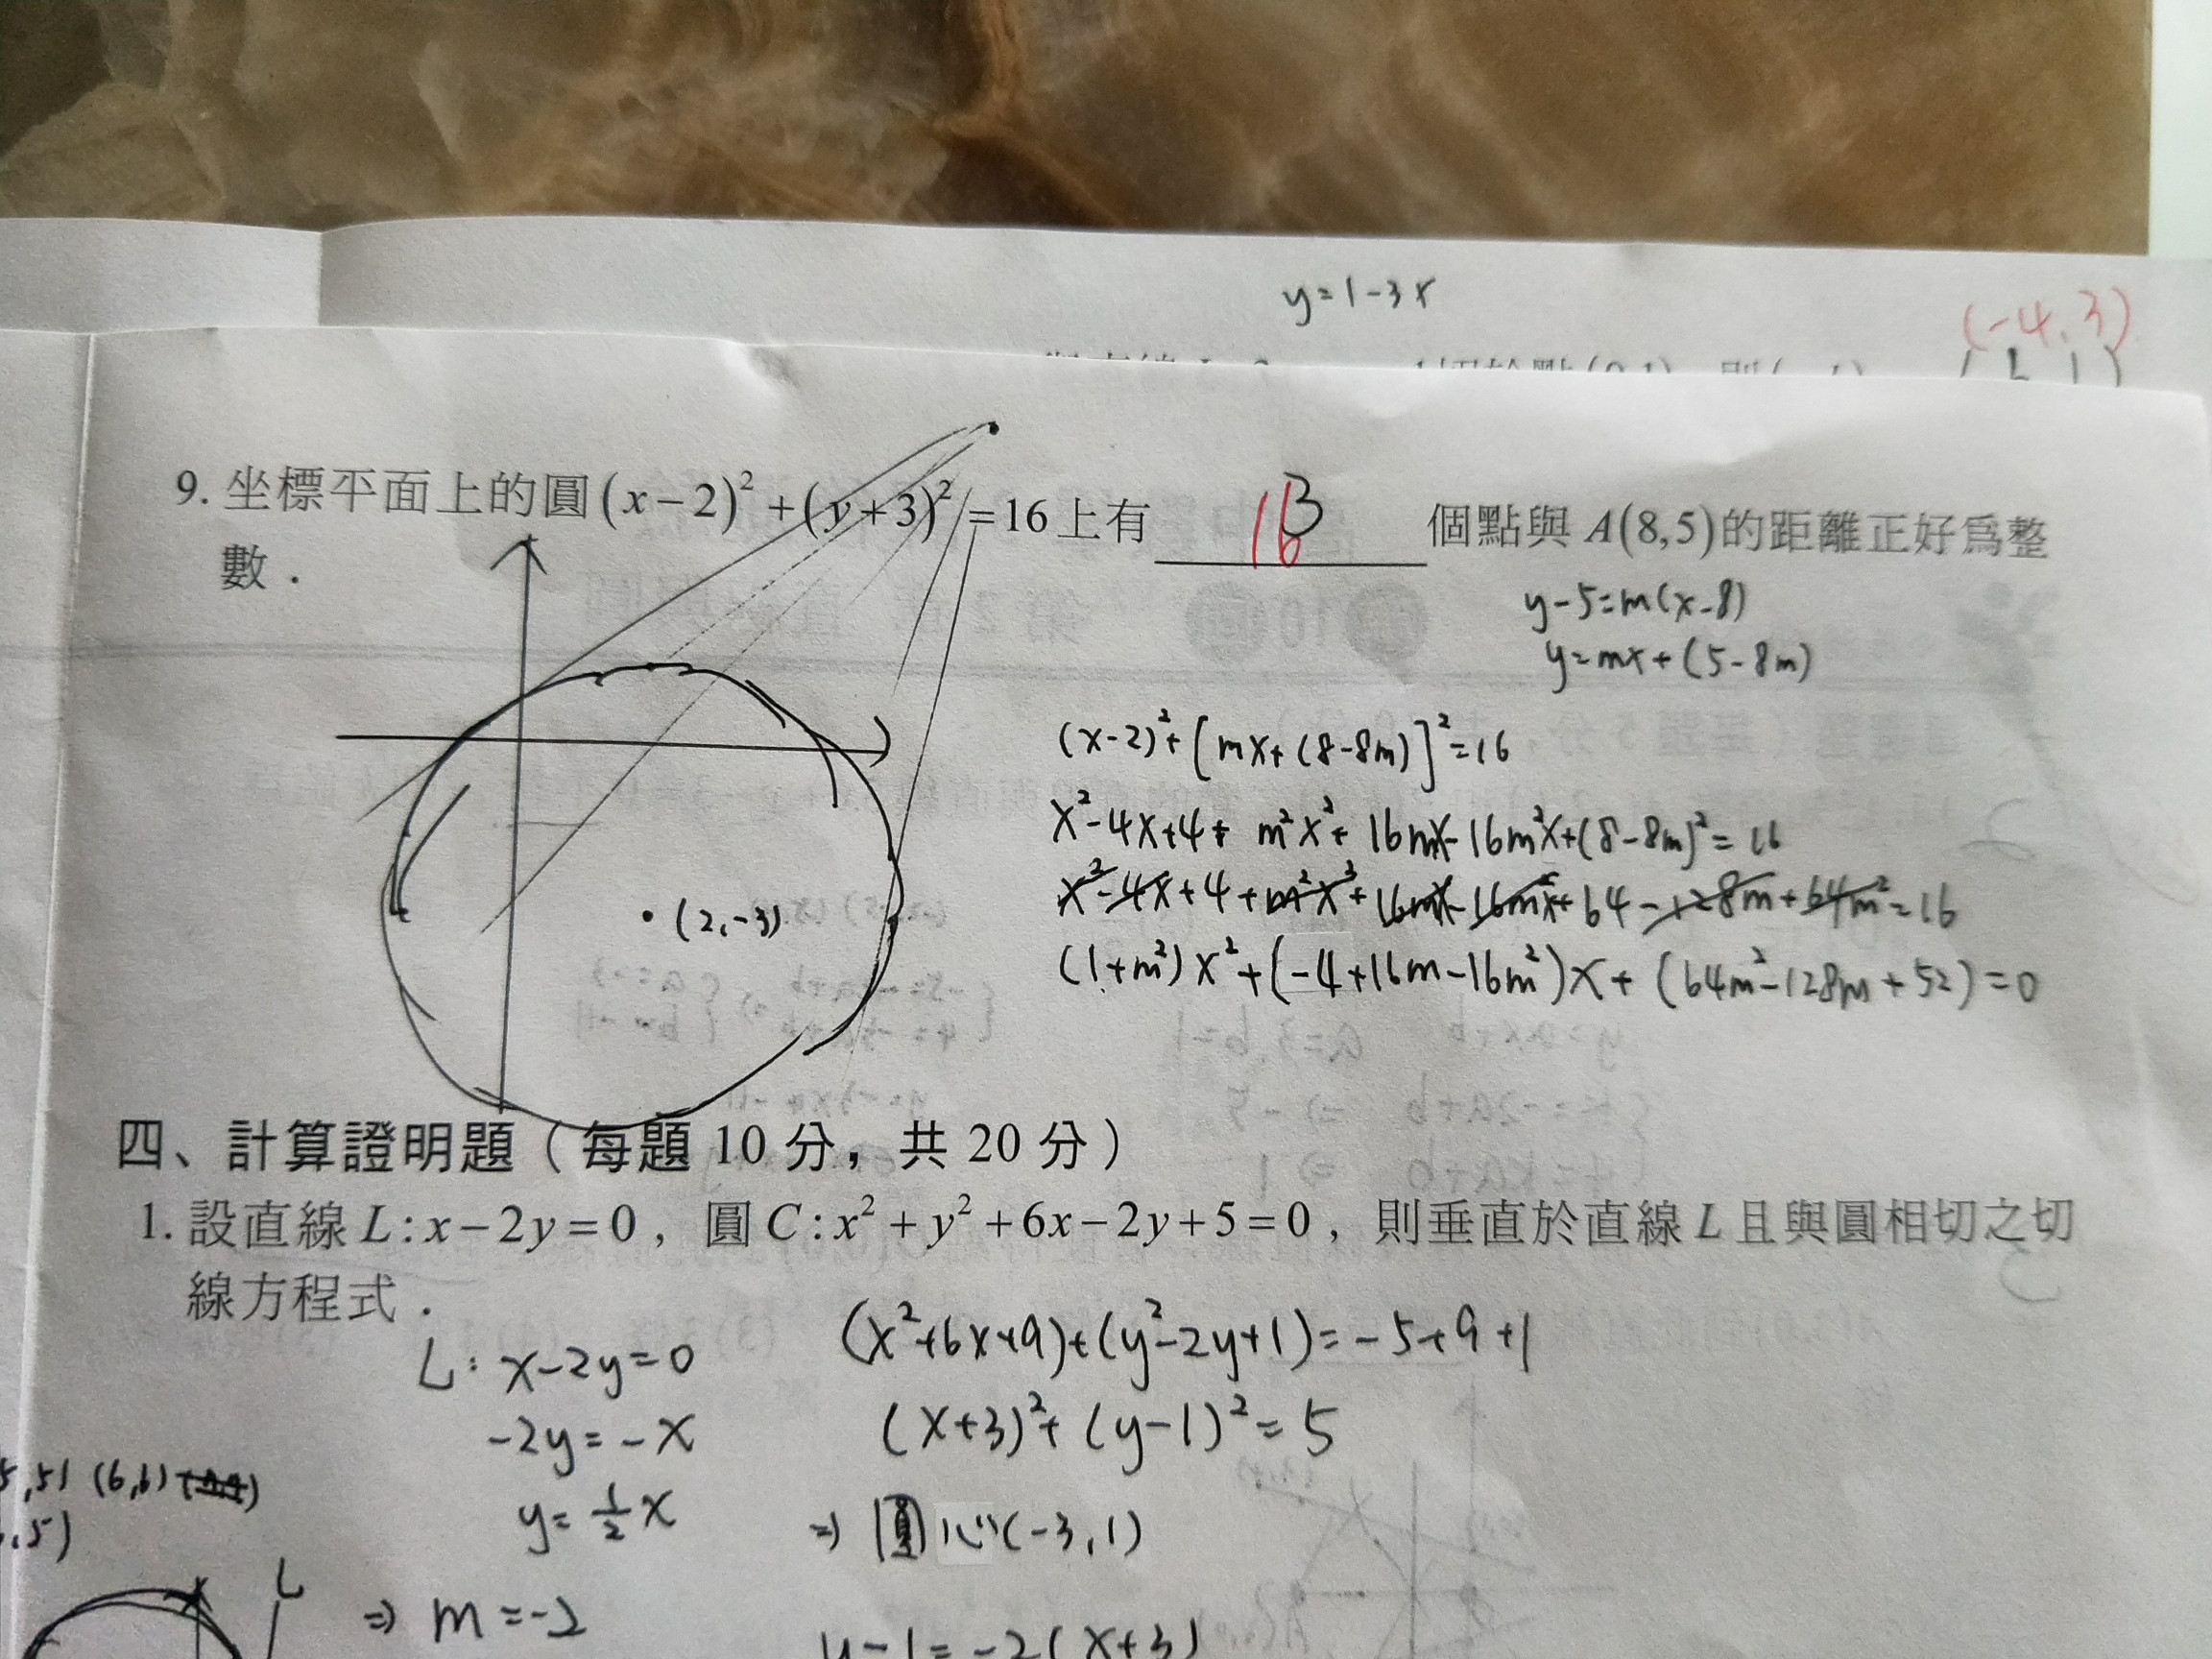 y=1-3x
(-4,3)
9. 坐標平面上的圓(x-2)²+(y+3)²=16上有 16 3 個點與 A(8,5)的距離正好為整
數．
y-5=m(x-8)
y=mx+(5-8m)
(x-2)²+[mx+(8-8m)]²=16
x²-4x+4+m²x²+16mx-16m²x+(8-8m)²=16
x²-4x+4+m²x²+16mx-16m²x+64-128m+64m²=16
(1+m²)x²+(-4+16m-16m²)x+(64m²-128m+52)=0
•(2,-3)
四、計算證明題（每題 10 分，共 20 分）
1. 設直線 L:x-2y=0，圓 C:x²+y²+6x-2y+5=0，則垂直於直線 L 且與圓相切之切
線方程式．
L: x-2y=0
-2y=-x
y=½x
⇒ m=-2
(x²+6x+9)+(y²-2y+1)=-5+9+1
(x+3)²+(y-1)²=5
⇒ 圓心(-3,1)
y-1=-2(x+3)
5,5) (6,6)
,5)
L